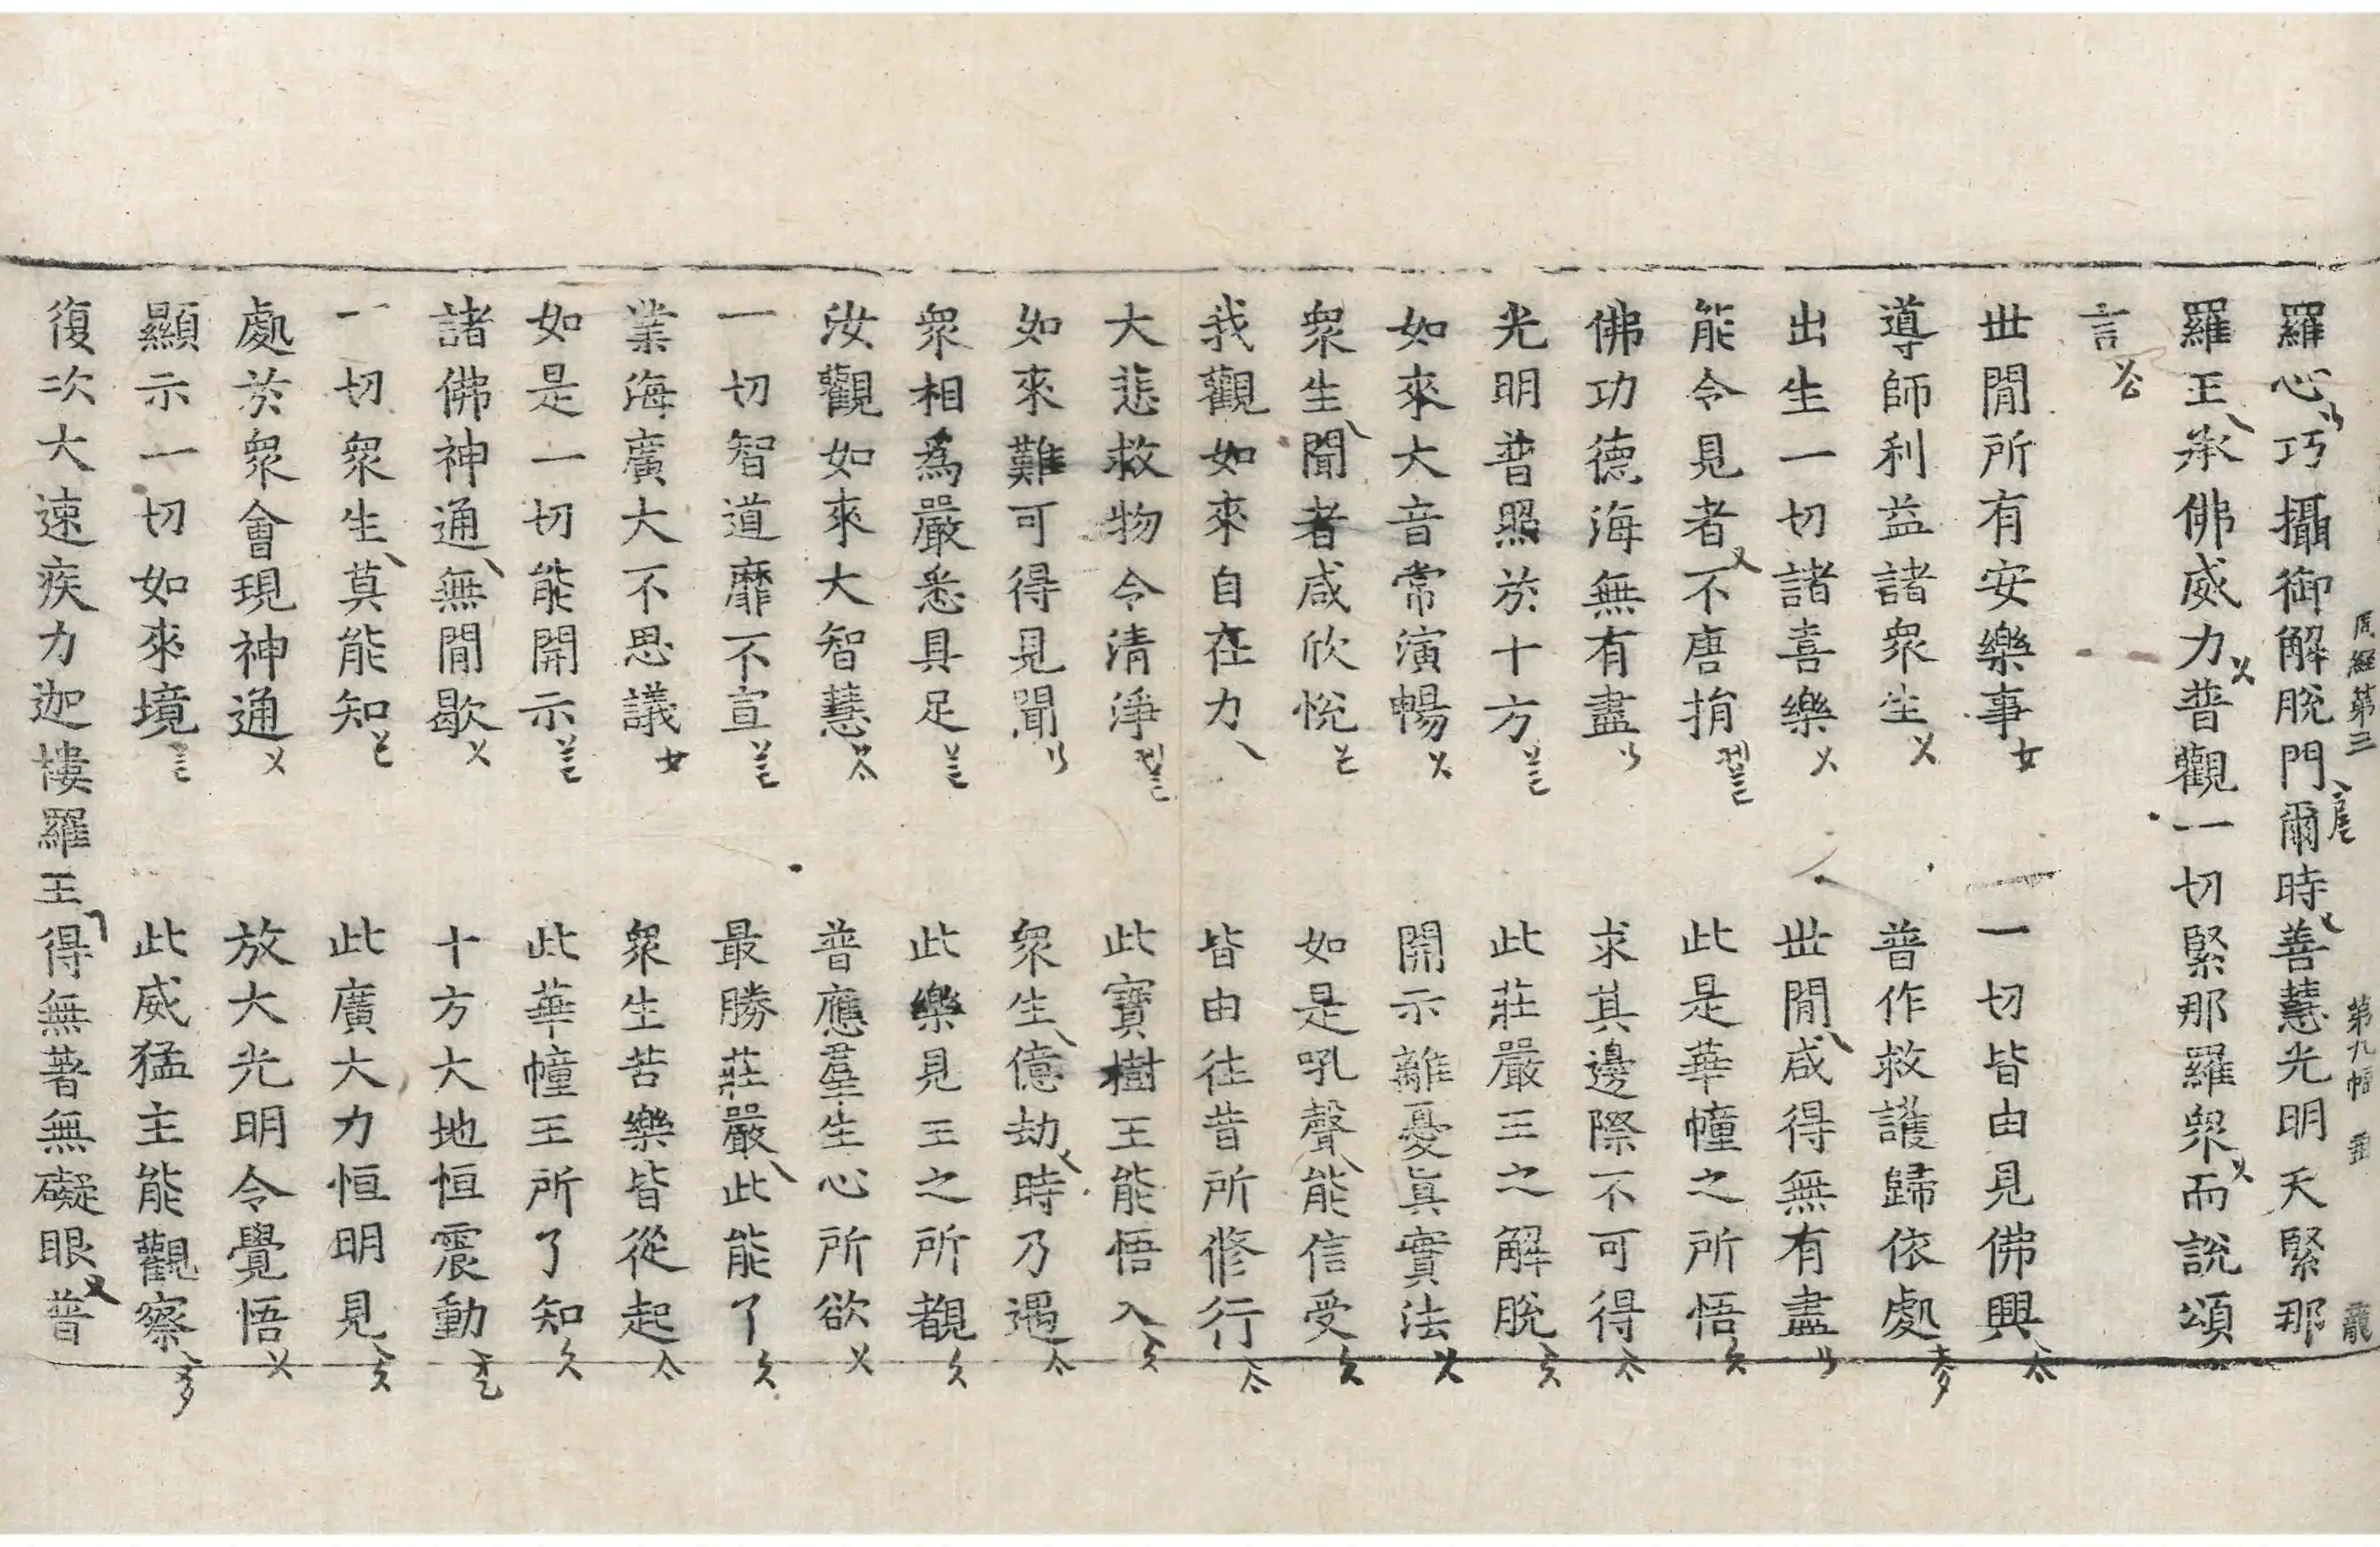 周經第三 第九幅 龍
羅心巧攝御解脫門爾時善慧光明天緊那
羅王承佛威力普觀一切緊那羅衆而說頌
言
世閒所有安樂事 一切皆由見佛興
導師利益諸衆生 普作救護歸依處
出生一切諸喜樂 世閒咸得無有盡
能令見者不唐捐 此是華幢之所悟
佛功德海無有盡 求其邊際不可得
光明普照於十方 此莊嚴王之解脫
如來大音常演暢 開示離憂眞實法
衆生聞者咸欣悅 如是吼聲能信受
我觀如來自在力 皆由往昔所修行
大悲救物令清淨 此寶樹王能悟入
如來難可得見聞 衆生億劫時乃遇
衆相爲嚴悉具足 此樂見王之所覩
汝觀如來大智慧 普應羣生心所欲
一切智道靡不宣 最勝莊嚴此能了
業海廣大不思議 衆生苦樂皆從起
如是一切能開示 此華幢王所了知
諸佛神通無閒歇 十方大地恒震動
一切衆生莫能知 此廣大力恒明見
處於衆會現神通 放大光明令覺悟
顯示一切如來境 此威猛主能觀察
復次大速疾力迦樓羅王得無著無礙眼普